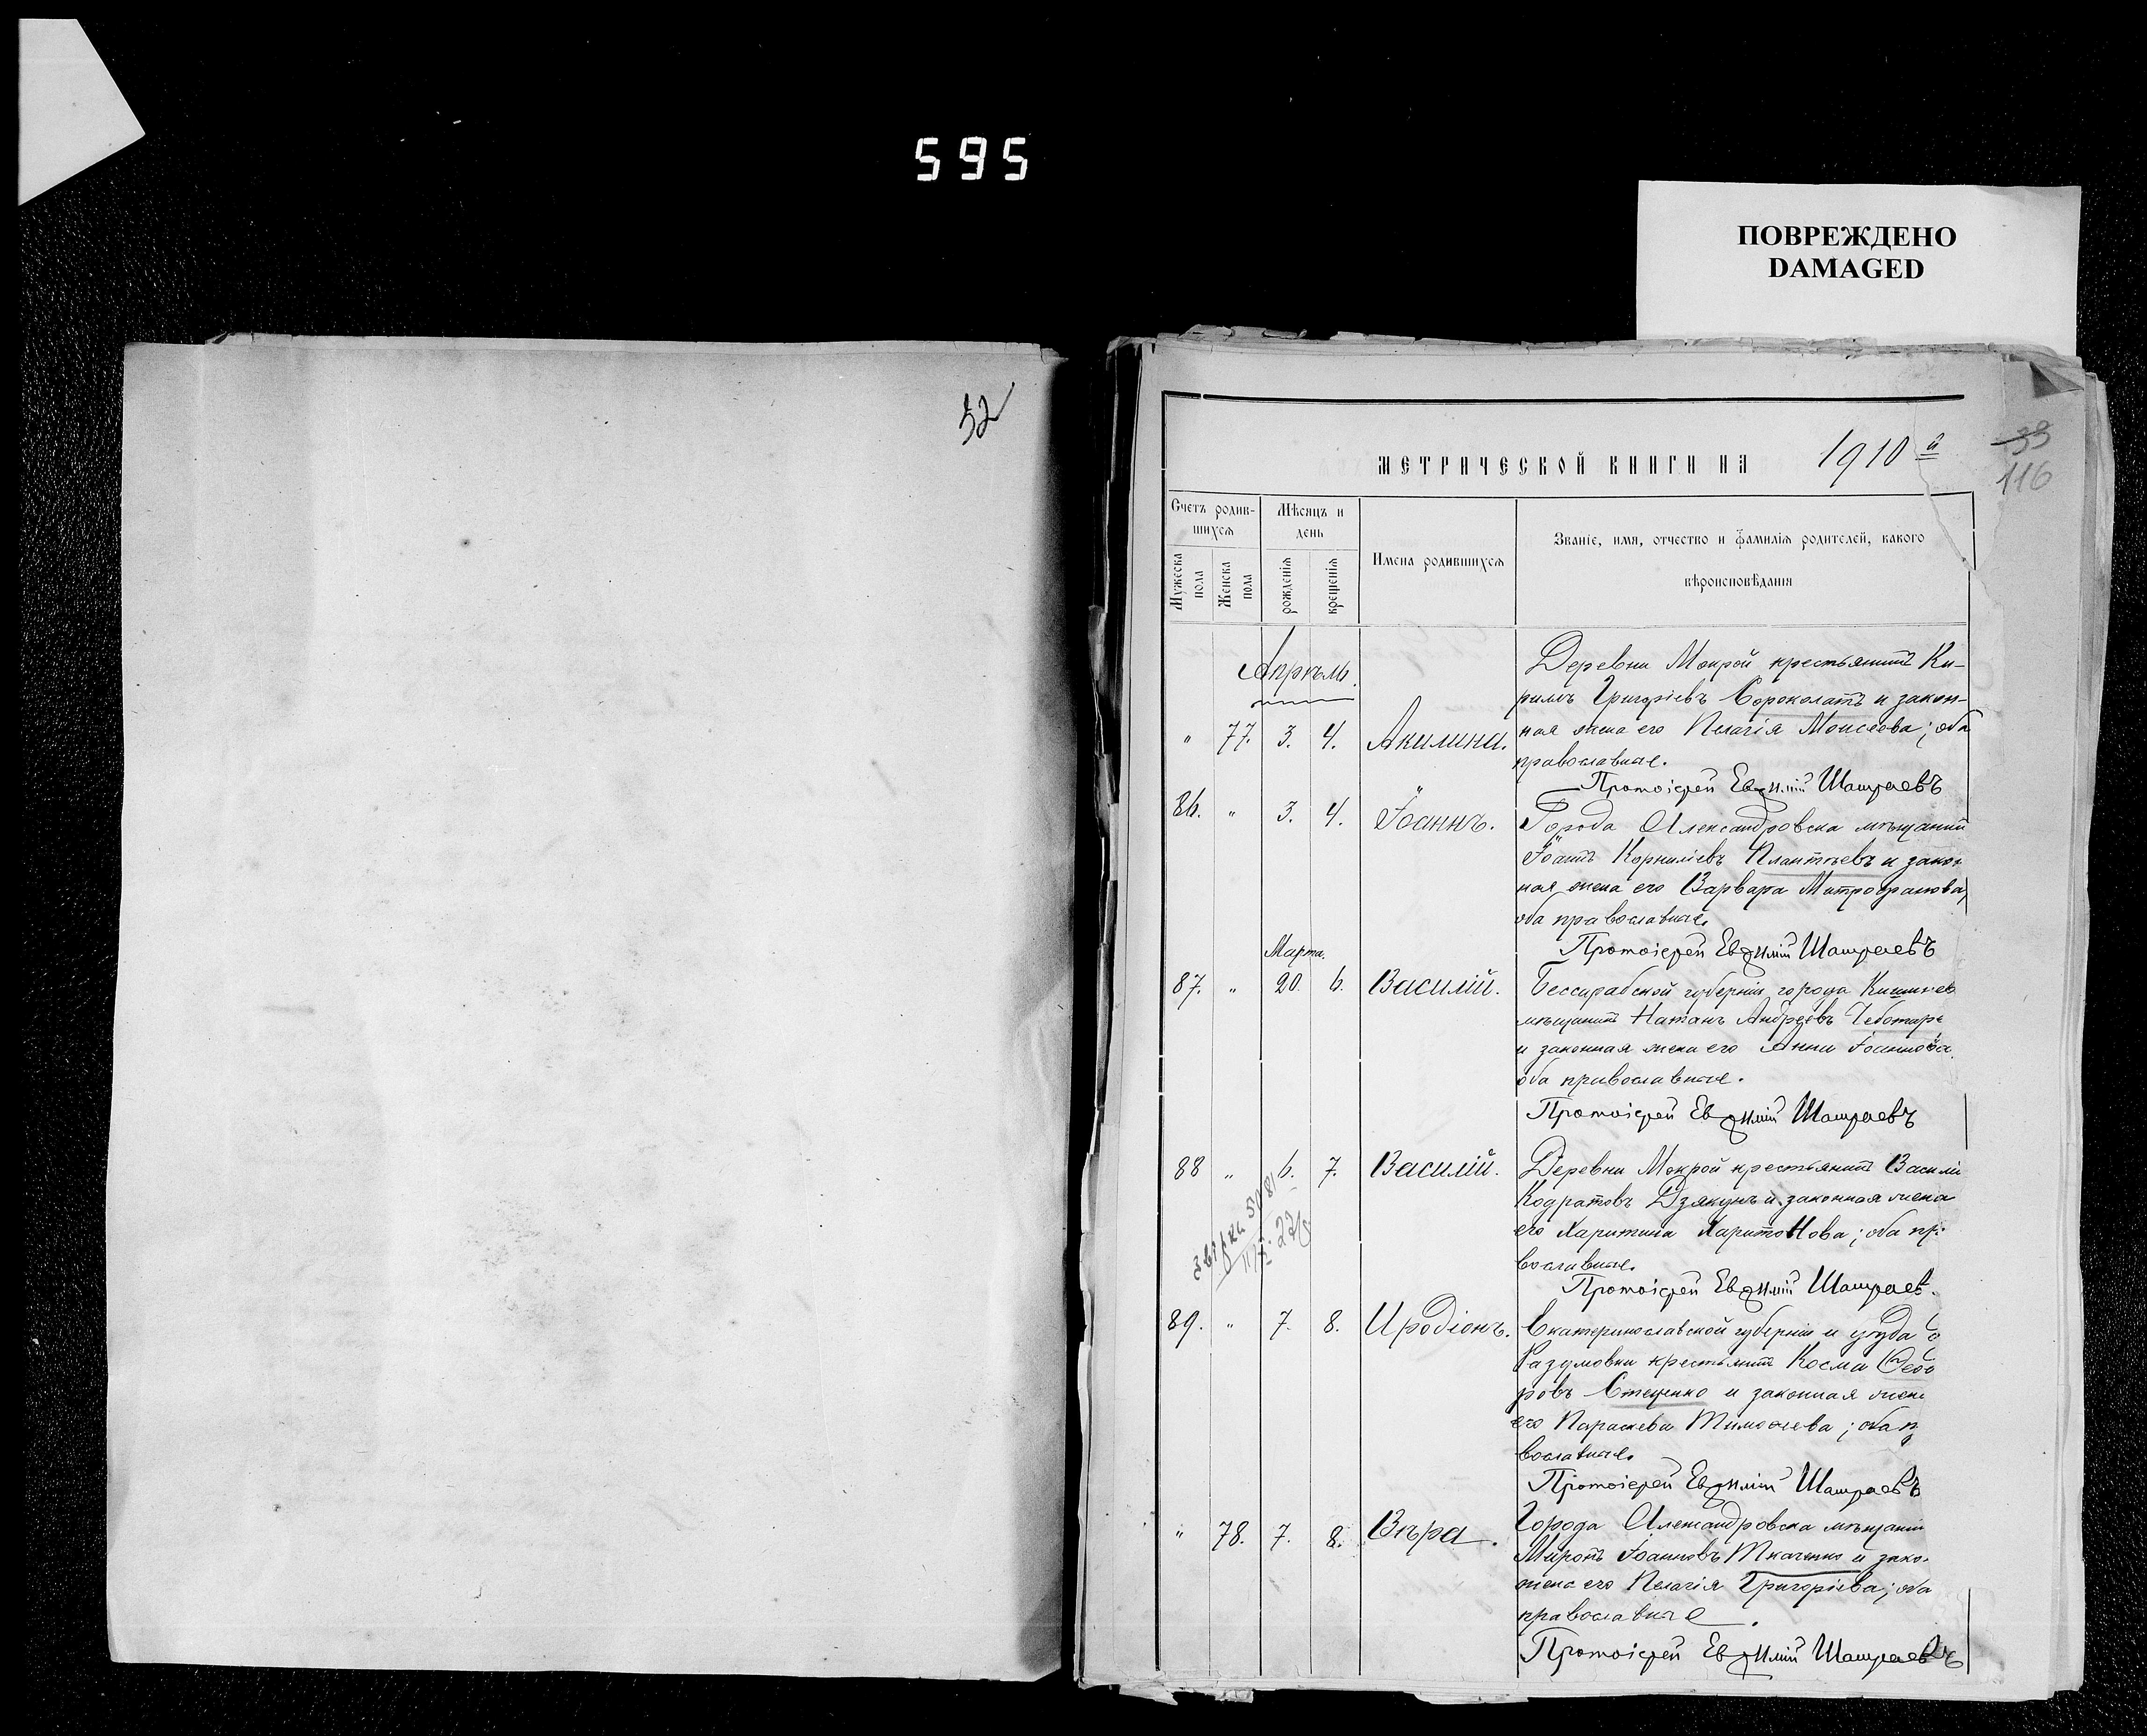 595
ПОВРЕЖДЕНО
DAMAGED
52
39
116
МЕТРИЧЕСКОЙ КНИГИ НА 1910 й
Счетъ родив-
шихся
Мѣсяцъ и
день
Мужеска
пола
Женска
пола
рожденія
крещенія
Имена родившихся
Званіе, имя, отчество и фамилія родителей, какого
вѣроисповѣданія
Апрѣль.
" 77. 3. 4. Акилина.
Деревни Мокрой крестьянинъ Ки-
рилъ Григоріевъ Сороколатъ и закон-
ная жена его Пелагія Моисеова; оба
православные.
Протоіерей Евѳимій Шашраевъ
86. " 3. 4. Іоаннъ.
Города Александровска мѣщанин
Іоаннъ Корниліевъ Плаптѣевъ и закон
ная жена его Варвара Митрофанова,
оба православные.
Протоіерей Евѳимій Шашраевъ
Марта.
87. " 20. 6. Василій.
Бессарабской губерніи города Кишинев
мѣщанинъ Натанъ Андреевъ Чеботаре
и законная жена его Анна Іоаннова,
оба православные.
Протоіерей Евѳимій Шашраевъ
88 " 6. 7. Василій.
Деревни Мокрой крестьянинъ Василі
Кодратовъ Дзякунъ и законная жена
его Харитина Харитонова; оба пр.
вославные.
Протоіерей Евѳимій Шашраев.
89. " 7. 8. Иродіонъ.
Екатеринославской губерніи и уѣзда с
Разумовки крестьянинъ Косма Ѳедо
ровъ Стеценко и законная жен
его Параскева Тимоѳеева; оба п
вославные.
Протоіерей Евѳимій Шашраевъ
" 78. 7. 8. Вѣра.
Города Александровска мѣщанин
Миронъ Іоанновъ Ткаченко и зако.
жена его Пелагія Григоріева; оба
православные.
Протоіерей Евѳимій Шашраевъ